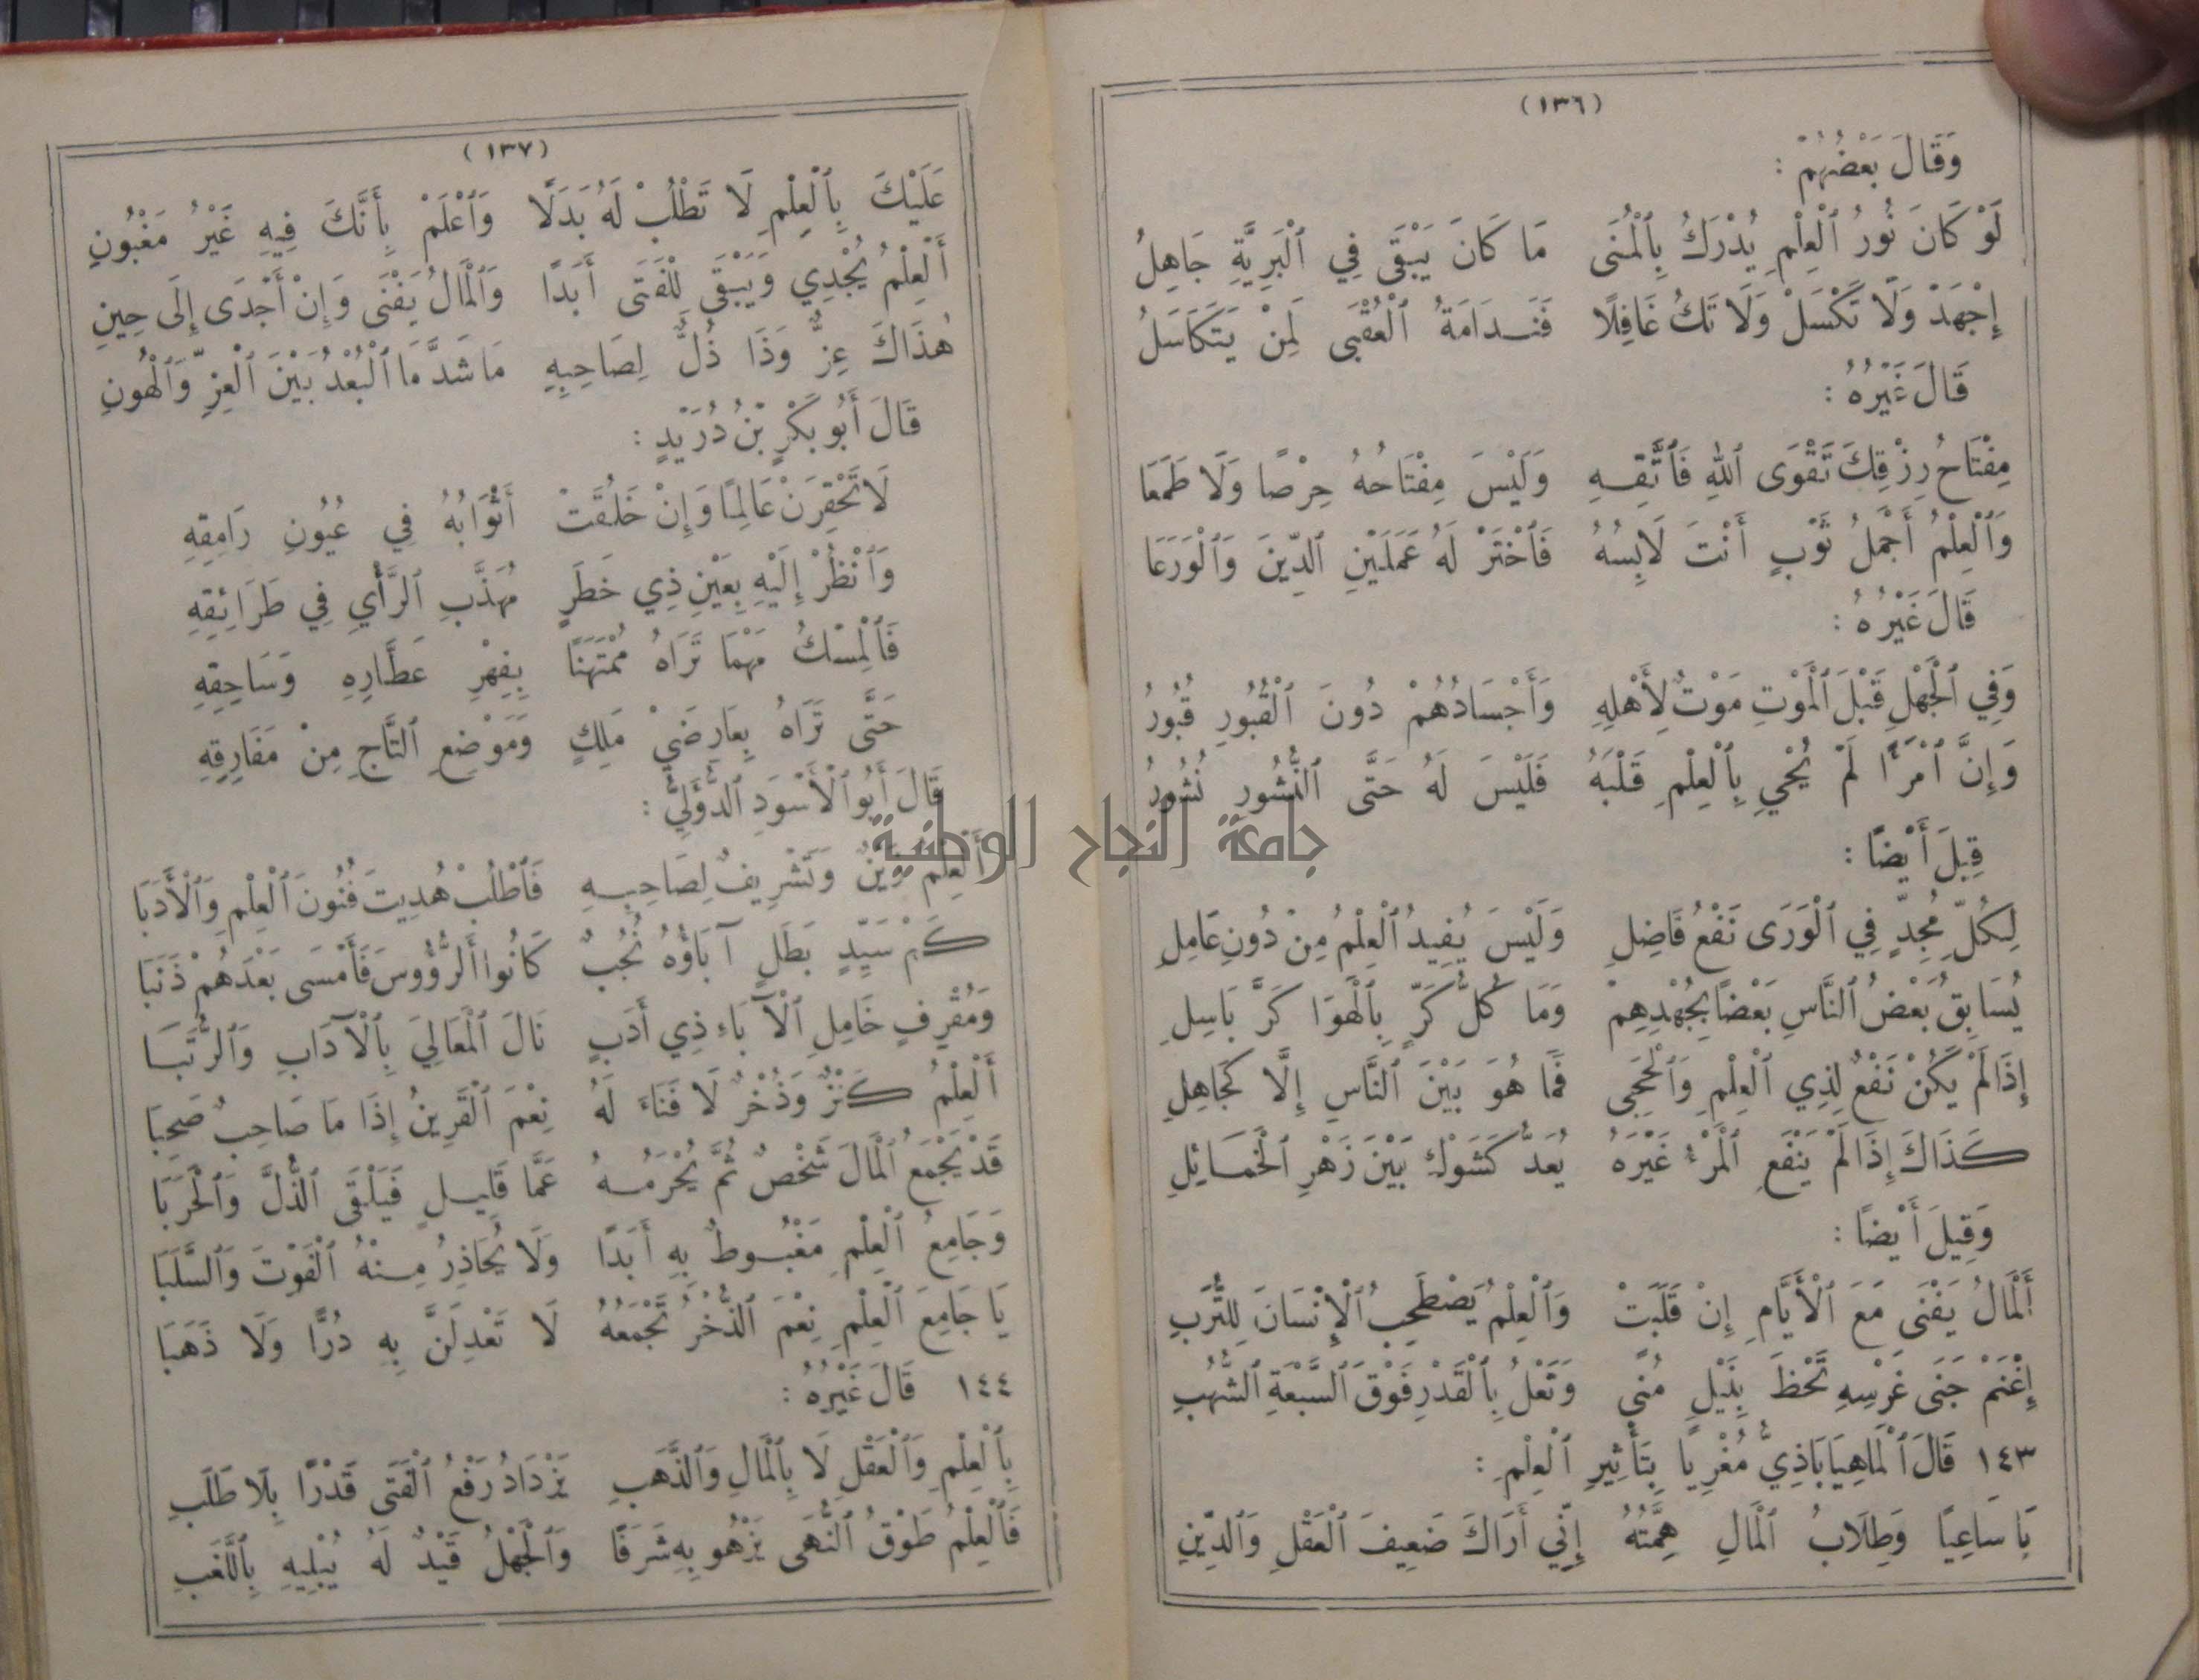 (١٣٦)
وَقَالَ بَعْضُهُمْ :
لَوْ كَانَ نُورُ ٱلْعِلْمِ يُدْرَكُ بِٱلْمُنَى مَا كَانَ يَبْقَى فِي ٱلْبَرِيَّةِ جَاهِلُ
إِجْهَدْ وَلَا تَكْسَلْ وَلَا تَكُ غَافِلًا فَنَدَامَةُ ٱلْعُقْبَى لِمَنْ يَتَكَاسَلُ
قَالَ غَيْرُهُ :
مِفْتَاحُ رِزْقِكَ تَقْوَى ٱللهِ فَٱتَّقِهِ وَلَيْسَ مِفْتَاحُهُ حِرْصًا وَلَا طَمَعَا
وَٱلْعِلْمُ أَجْمَلُ ثَوْبٍ أَنْتَ لَابِسُهُ فَٱخْتَرْ لَهُ عَمَلَيْنِ ٱلدِّينَ وَٱلْوَرَعَا
قَالَ غَيْرُهُ :
وَفِي ٱلْجَهْلِ قَبْلَ ٱلْمَوْتِ مَوْتٌ لِأَهْلِهِ وَأَجْسَادُهُمْ دُونَ ٱلْقُبُورِ قُبُورُ
وَإِنَّ ٱمْرَأً لَمْ يُحْيِ بِٱلْعِلْمِ قَلْبَهُ فَلَيْسَ لَهُ حَتَّى ٱلنُّشُورِ نُشُورُ
قِيلَ أَيْضًا :
لِكُلِّ مُجِدٍّ فِي ٱلْوَرَى نَفْعُ فَاضِلِ وَلَيْسَ يُفِيدُ ٱلْعِلْمُ مِنْ دُونِ عَامِلِ
يُسَابِقُ بَعْضُ ٱلنَّاسِ بَعْضًا بِجُهْدِهِمْ وَمَا كُلُّ كَرٍّ بِٱلْهَوَا كَرَّ بَاسِلِ
إِذَا لَمْ يَكُنْ نَفْعٌ لِذِي ٱلْعِلْمِ وَٱلْحِجَى فَمَا هُوَ بَيْنَ ٱلنَّاسِ إِلَّا كَجَاهِلِ
كَذَاكَ إِذَا لَمْ يَنْفَعِ ٱلْمَرْءُ غَيْرَهُ يُعَدُّ كَشَوْكٍ بَيْنَ زَهْرِ ٱلْخَمَائِلِ
وَقِيلَ أَيْضًا :
أَلْمَالُ يَفْنَى مَعَ ٱلْأَيَّامِ إِنْ قَلَبَتْ وَٱلْعِلْمُ يَصْطَحِبُ ٱلْإِنْسَانَ لِلتُّرَبِ
إِغْنَمْ جَنَى غَرْسِهِ تَحْظَ بِنَيْلِ مُنًى وَتَعْلُ بِٱلْقَدْرِ فَوْقَ ٱلسَّبْعَةِ ٱلشُّهُبِ
١٤٣ قَالَ ٱلْمَاهِيَابَاذِيُّ مُغْرِيًا بِتَأْثِيرِ ٱلْعِلْمِ :
يَا سَاعِيًا وَطِلَابُ ٱلْمَالِ هِمَّتُهُ إِنِّي أَرَاكَ ضَعِيفَ ٱلْعَقْلِ وَٱلدِّينِ
(١٣٧)
عَلَيْكَ بِٱلْعِلْمِ لَا تَطْلُبْ لَهُ بَدَلًا وَٱعْلَمْ بِأَنَّكَ فِيهِ غَيْرُ مَغْبُونِ
أَلْعِلْمُ يُجْدِي وَيَبْقَى لِلْفَتَى أَبَدًا وَٱلْمَالُ يَفْنَى وَإِنْ أَجْدَى إِلَى حِينِ
هٰذَاكَ عِزٌّ وَذَا ذُلٌّ لِصَاحِبِهِ مَا شَدَّ مَا ٱلْبُعْدُ بَيْنَ ٱلْعِزِّ وَٱلْهُونِ
قَالَ أَبُو بَكْرِ بْنُ دُرَيْدٍ :
لَا تَحْقِرَنْ عَالِمًا وَإِنْ خَلُقَتْ أَثْوَابُهُ فِي عُيُونِ رَامِقِهِ
وَٱنْظُرْ إِلَيْهِ بِعَيْنِ ذِي خَطَرٍ مُهَذَّبِ ٱلرَّأْيِ فِي طَرَائِقِهِ
فَٱلْمِسْكُ مَهْمَا تَرَاهُ مُمْتَهَنًا بِفِهْرِ عَطَّارِهِ وَسَاحِقِهِ
حَتَّى تَرَاهُ بِعَارِضَيْ مَلِكٍ وَمَوْضِعِ ٱلتَّاجِ مِنْ مَفَارِقِهِ
قَالَ أَبُو ٱلْأَسْوَدِ ٱلدُّؤَلِيُّ :
جامعة النجاح الوطنية
أَلْعِلْمُ زَيْنٌ وَتَشْرِيفٌ لِصَاحِبِهِ فَٱطْلُبْ هُدِيتَ فُنُونَ ٱلْعِلْمِ وَٱلْأَدَبَا
كَمْ سَيِّدٍ بَطَلٍ آبَاؤُهُ نُجُبٌ كَانُوا ٱلرُّؤُوسَ فَأَمْسَى بَعْدَهُمْ ذَنَبَا
وَمُقْرِفٍ خَامِلِ ٱلْآبَاءِ ذِي أَدَبٍ نَالَ ٱلْمَعَالِيَ بِٱلْآدَابِ وَٱلرُّتَبَا
أَلْعِلْمُ كَنْزٌ وَذُخْرٌ لَا فَنَاءَ لَهُ نِعْمَ ٱلْقَرِينُ إِذَا مَا صَاحِبٌ صَحِبَا
قَدْ يَجْمَعُ ٱلْمَالَ شَخْصٌ ثُمَّ يُحْرَمُهُ عَمَّا قَلِيلٍ فَيَلْقَى ٱلذُّلَّ وَٱلْحَرَبَا
وَجَامِعُ ٱلْعِلْمِ مَغْبُوطٌ بِهِ أَبَدًا وَلَا يُحَاذِرُ مِنْهُ ٱلْفَوْتَ وَٱلسَّلَبَا
يَا جَامِعَ ٱلْعِلْمِ نِعْمَ ٱلذُّخْرُ تَجْمَعُهُ لَا تَعْدِلَنَّ بِهِ دُرًّا وَلَا ذَهَبَا
١٤٤ قَالَ غَيْرُهُ :
بِٱلْعِلْمِ وَٱلْعَقْلِ لَا بِٱلْمَالِ وَٱلذَّهَبِ يَزْدَادُ رَفْعُ ٱلْفَتَى قَدْرًا بِلَا طَلَبِ
فَٱلْعِلْمُ طَوْقُ ٱلنُّهَى يَزْهُو بِهِ شَرَفًا وَٱلْجَهْلُ قَيْدٌ لَهُ يُبْلِيهِ بِٱللَّغَبِ